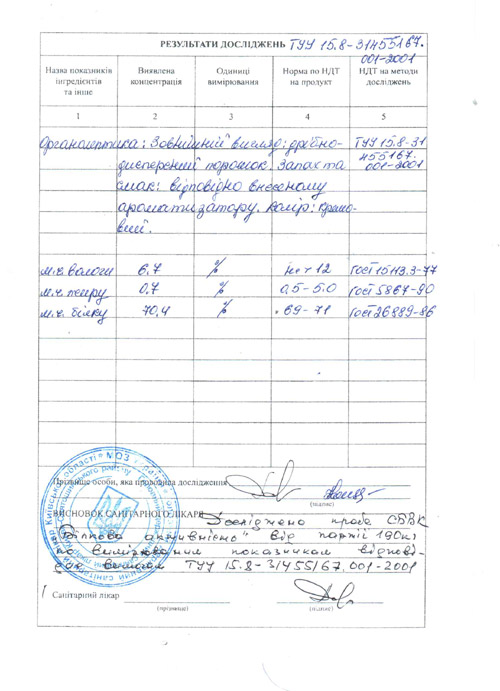 РЕЗУЛЬТАТИ ДОСЛІДЖЕНЬ ТУУ 15.8-31455167.
001-2001
Назва показників інгредієнтів та інше
Виявлена концентрація
Одиниці вимірювання
Норма по НДТ на продукт
НДТ на методи досліджень
1 2 3 4 5
Органолептика: Зовнішній вигляд: дрібно- ТУУ 15.8-31
дисперсний порошок. Запах та 455167.
смак: відповідно внесеному 001-2001
ароматизатору. Колір: кремо-
вий.
м.ч. вологи 6,7 % не > 12 Гост 15113.3-77
м.ч. жиру 0,7 % 0,5-5.0 Гост 5867-90
м.ч. білку 70,4 % 69-71 Гост 26889-86
Прізвище особи, яка проводила дослідження
(підпис)
ВИСНОВОК САНІТАРНОГО ЛІКАРЯ Досліджена проба СБВК
активністю" від партії 190кг
по вимірюваним показникам відпові-
дає вимогам ТУУ 15.8-31455167.001-2001
Санітарний лікар
(прізвище) (підпис)